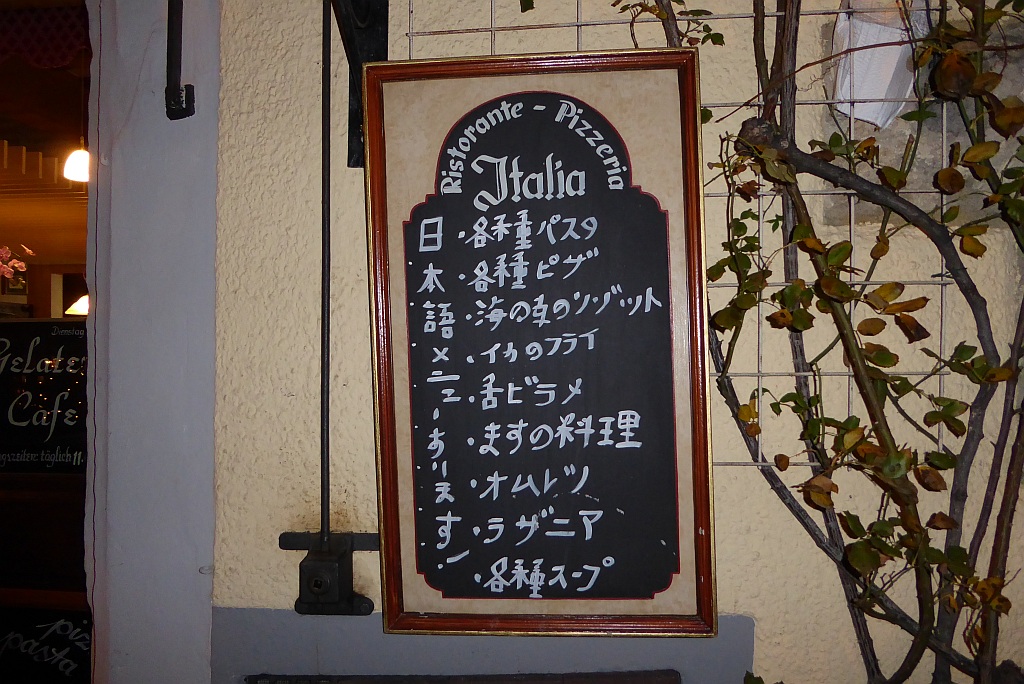 Ristorante - Pizzeria
Italia
日本語メニーあります
・各種パスタ
・各種ピザ
・海の幸のソゾット
・イカのフライ
・舌ビラメ
・ますの料理
・オムレツ
・ラザニア
・各種スープ
Dienstag
Gelate
Cafe
gszeiten: täglich 11.
piz
pasta